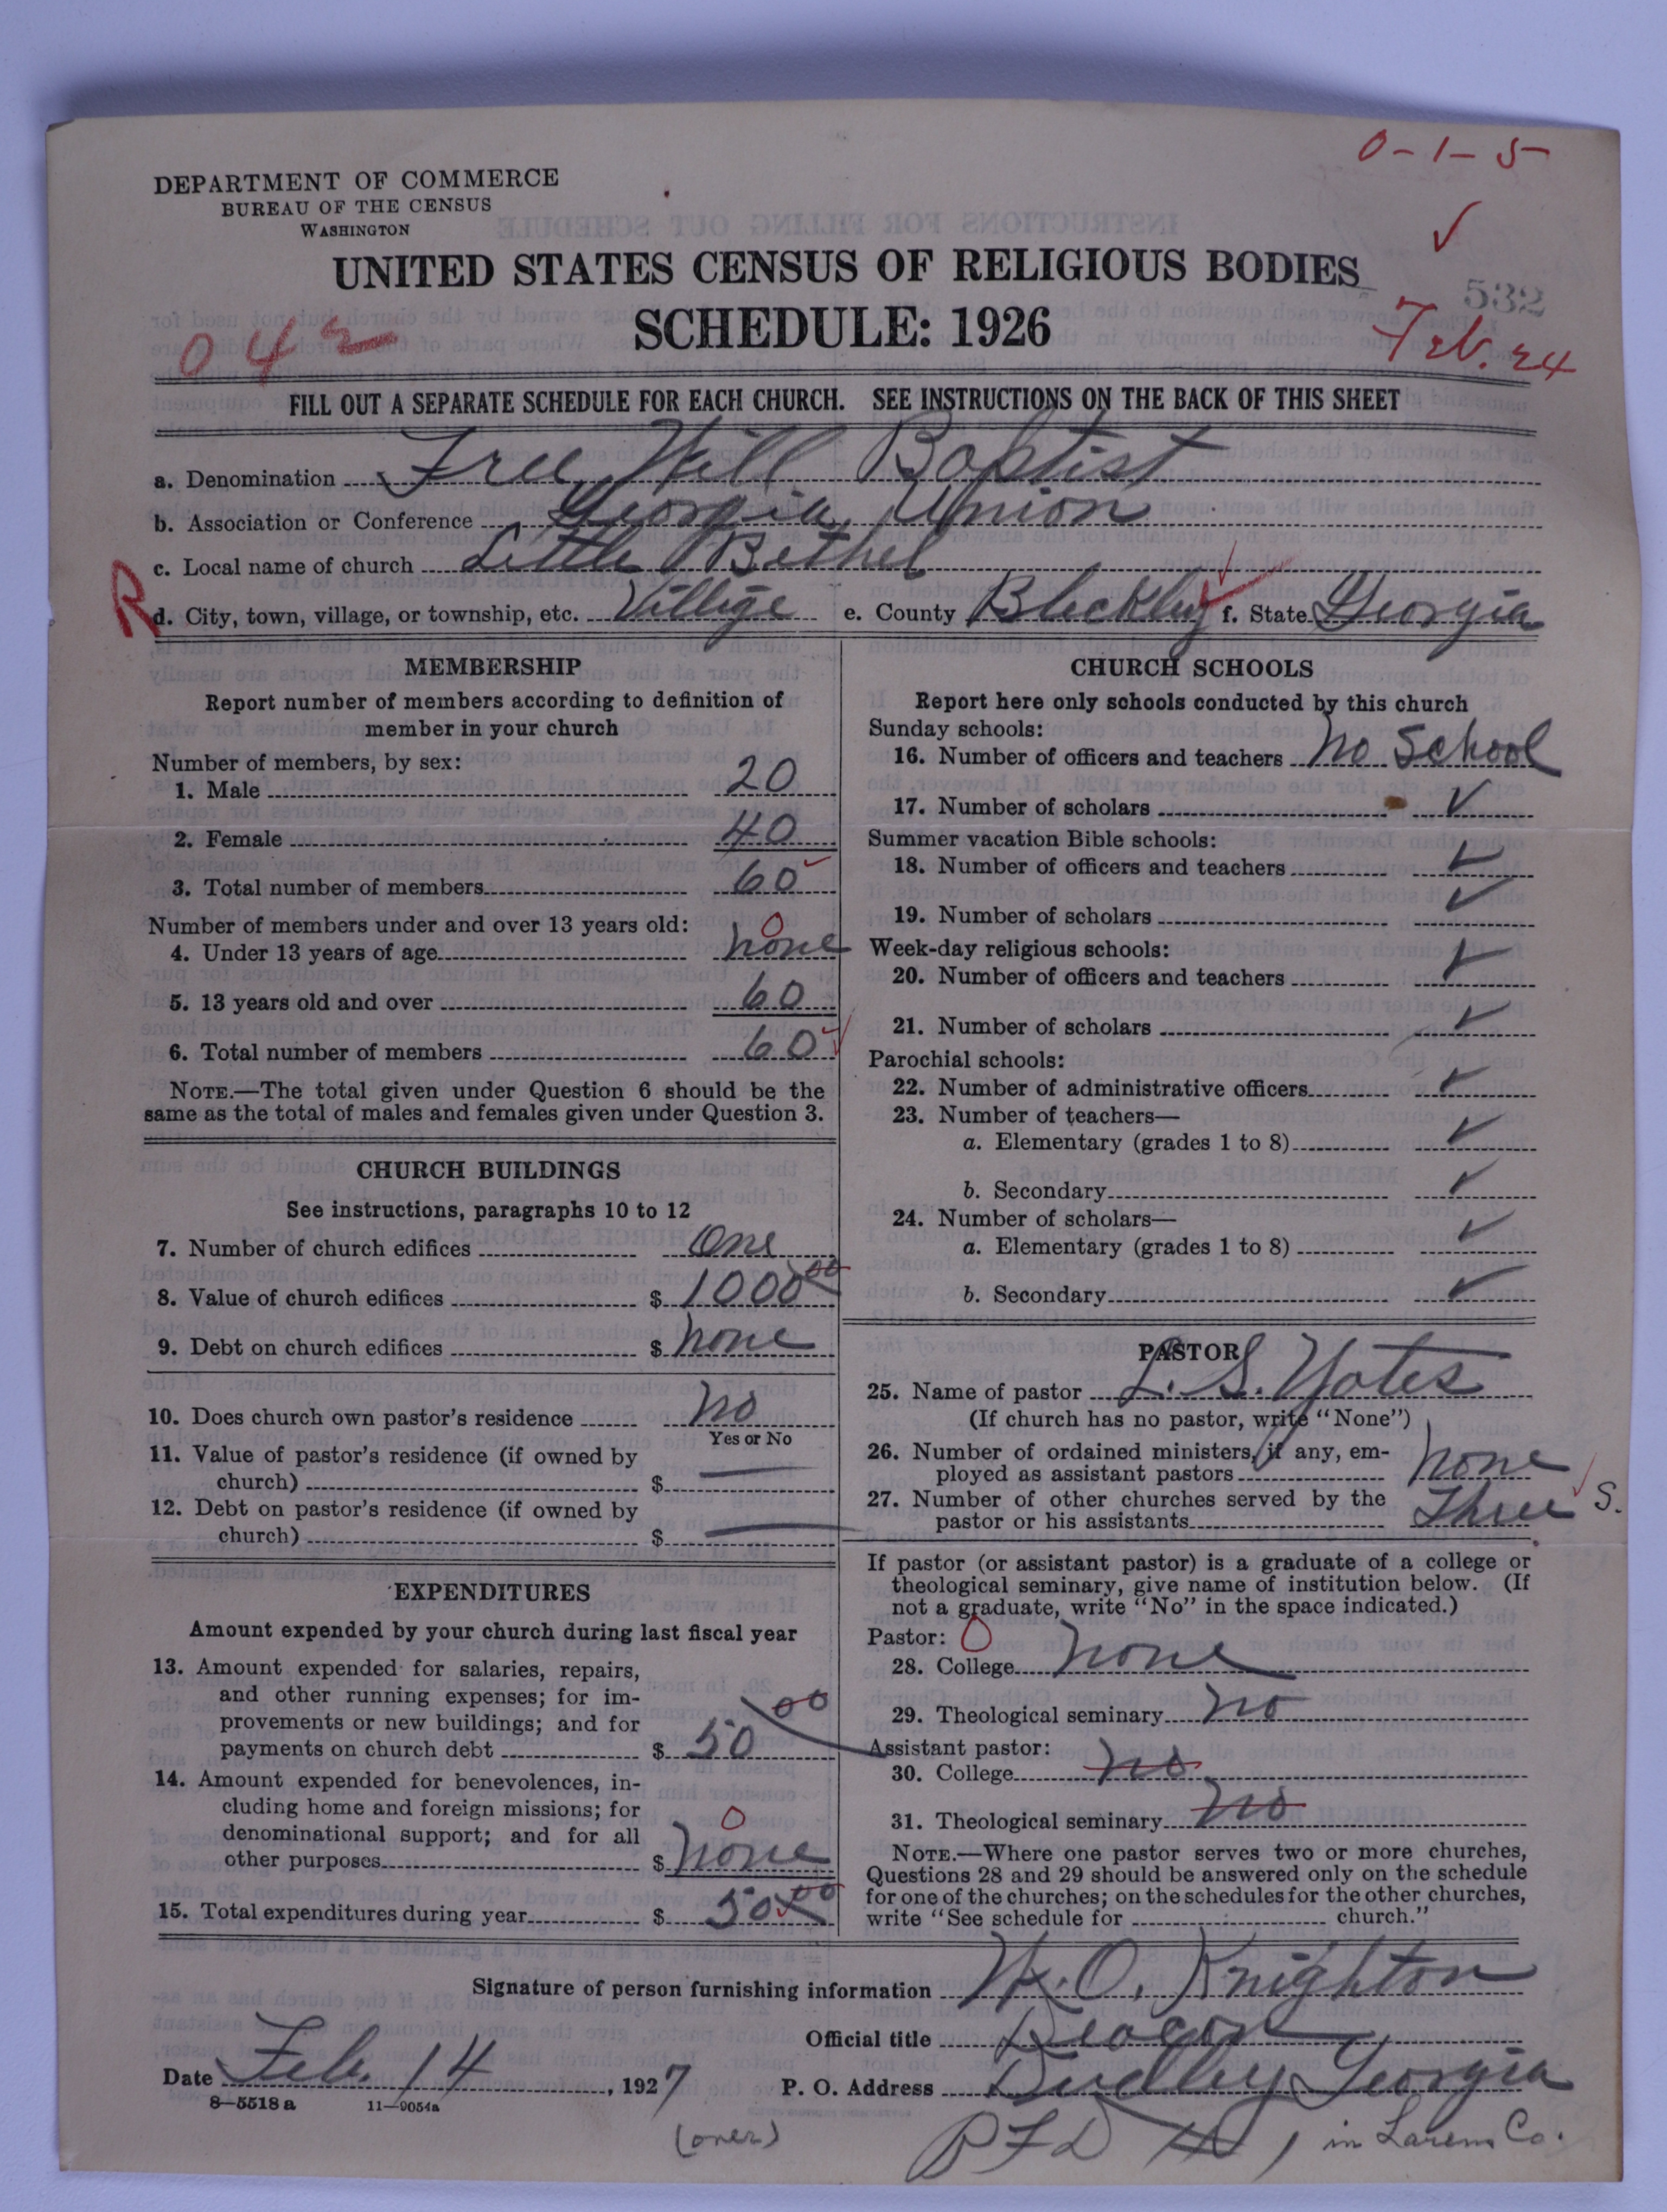 0-1-5
DEPARTMENT OF COMMERCE
BUREAU OF THE CENSUS
WASHINGTON
UNITED STATES CENSUS OF RELIGIOUS BODIES
532
SCHEDULE: 1926
042
Feb. 24
FILL OUT A SEPARATE SCHEDULE FOR EACH CHURCH. SEE INSTRUCTIONS ON THE BACK OF THIS SHEET
a. Denomination Free Will Baptist
b. Association or Conference Georgia Union
c. Local name of church Little Bethel
R
d. City, town, village, or township, etc. Villige e. County Bleckley f. State Georgia
MEMBERSHIP
Report number of members according to definition of
member in your church
Number of members, by sex:
1. Male 20
2. Female 40
3. Total number of members 60
Number of members under and over 13 years old:
0
4. Under 13 years of age none
5. 13 years old and over 60
6. Total number of members 60
NOTE.—The total given under Question 6 should be the
same as the total of males and females given under Question 3.
CHURCH BUILDINGS
See instructions, paragraphs 10 to 12
7. Number of church edifices One
8. Value of church edifices $ 1000 00
9. Debt on church edifices $ none
10. Does church own pastor's residence no
Yes or No
11. Value of pastor's residence (if owned by
church) $
12. Debt on pastor's residence (if owned by
church) $
EXPENDITURES
Amount expended by your church during last fiscal year
13. Amount expended for salaries, repairs,
and other running expenses; for im-
provements or new buildings; and for
payments on church debt $ 50 00
14. Amount expended for benevolences, in-
cluding home and foreign missions; for
denominational support; and for all
0
other purposes $ none
15. Total expenditures during year $ 50 00
CHURCH SCHOOLS
Report here only schools conducted by this church
Sunday schools:
16. Number of officers and teachers no School
17. Number of scholars ✓
Summer vacation Bible schools:
18. Number of officers and teachers ✓
19. Number of scholars ✓
Week-day religious schools:
20. Number of officers and teachers ✓
21. Number of scholars ✓
Parochial schools:
22. Number of administrative officers ✓
23. Number of teachers—
a. Elementary (grades 1 to 8) ✓
b. Secondary ✓
24. Number of scholars—
a. Elementary (grades 1 to 8) ✓
b. Secondary ✓
PASTOR
25. Name of pastor L. S. Yates
(If church has no pastor, write "None")
26. Number of ordained ministers, if any, em-
ployed as assistant pastors none
27. Number of other churches served by the
pastor or his assistants Three S.
If pastor (or assistant pastor) is a graduate of a college or
theological seminary, give name of institution below. (If
not a graduate, write "No" in the space indicated.)
Pastor: 0
28. College none
29. Theological seminary no
Assistant pastor:
30. College no
31. Theological seminary no
NOTE.—Where one pastor serves two or more churches,
Questions 28 and 29 should be answered only on the schedule
for one of the churches; on the schedules for the other churches,
write "See schedule for church."
Signature of person furnishing information W. O. Knighton
Official title Deacon
Date Feb. 14, 1927 P. O. Address Dudley Georgia
8—5518 a 11—9054a
(over)
RFD # 1 in Laurens Co.